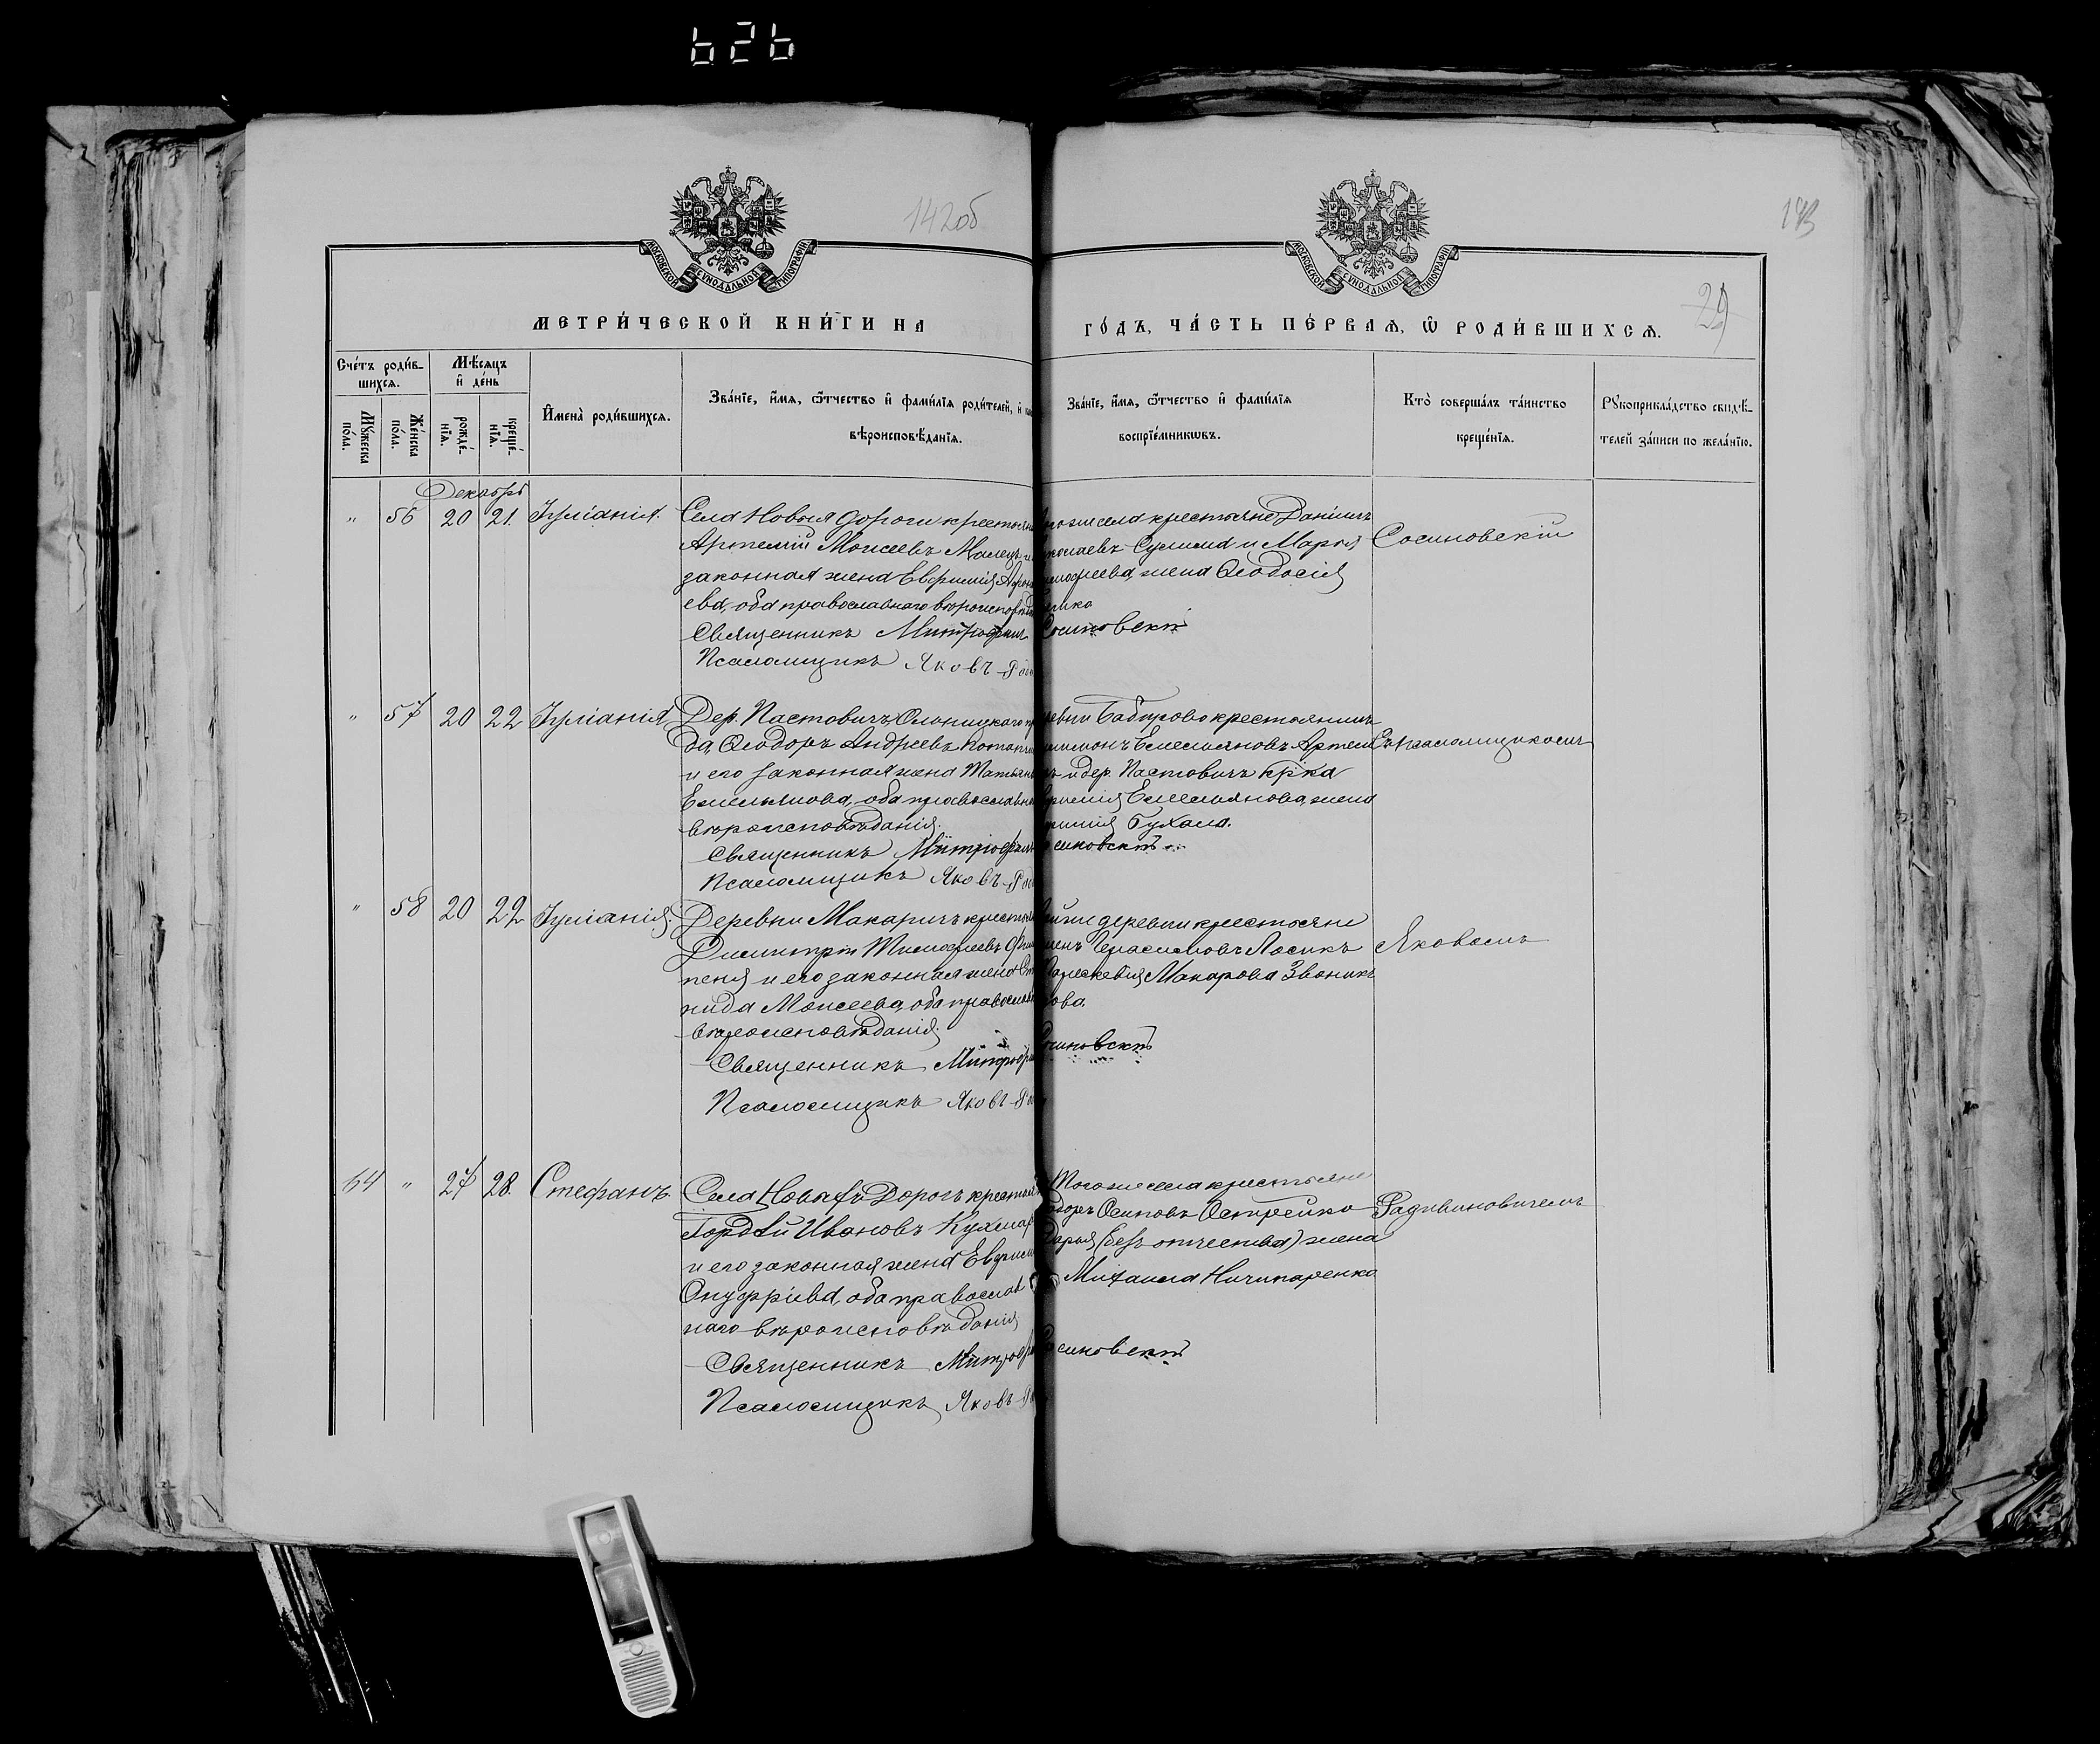 626
142об
143
29
МОСКОВСКОЙ СУНОДАЛЬНОЙ ТИПОГРАФІИ
МОСКОВСКОЙ СУНОДАЛЬНОЙ ТИПОГРАФІИ
МЕТРИ́ЧЕСКОЙ КНИ́ГИ НА
ГО́ДЪ, ЧА́СТЬ ПЕ́РВАѦ, Ѿ РОДИ́ВШИХСѦ.
Сче́тъ роди́в-
шихсѧ.
Мꙋ́жеска по́ла.
Же́нска по́ла.
Мѣ́сѧцъ
и҆ де́нь
рожде́-
нїѧ.
креще́-
нїѧ.
И҆мена̀ роди́вшихсѧ.
Зва́нїе, и҆́мѧ, ѻ҆́тчество и҆ фами́лїѧ роди́телей, и҆
вѣроисповѣ́данїѧ.
Зва́нїе, и҆́мѧ, ѻ҆́тчество и҆ фами́лїѧ
воспрїе́мникѡвъ.
Кто̀ соверша́лъ та́инство
креще́нїѧ.
Рꙋкоприкла́дство свидѣ́-
телей за́писи по жела́нїю.
Декабрь
" 56 20 21. Іуліанія.
Села Новыя Дороги крестьян
Артемій Моисеевъ Малецъ и
законная жена Евфимія
ева, оба православнаго вѣроисповѣд
Священникъ Митрофанъ
Псаломщикъ Яковъ
села крестьяне Даніилъ
Сулима и Марья
жена Ѳеодосія
Сосиновскій
Сосиновскій
" 57 20 22 Іуліанія,
Дер. Пастовичъ, Слонимскаго
да, Ѳеодоръ Андреевъ
и его законная жена Татьян
Емельянова, оба православн
вѣроисповѣданія.
Священникъ Митрофанъ
Псаломщикъ Яковъ
Бабирово крестьянинъ
Емельяновъ Артем
и дер. Пастовичъ кр҃ка
Емельянова, жена
Бухала.
синовскій
Съ псаломщикомъ
" 58 20 22 Іуліанія.
Деревни Макаричъ крестьян
Димитрій Тимофеевъ
пеня и его законная жена Сте
нида Моисеева, оба православн
вѣроисповѣданія.
Священникъ Митроф
Псаломщикъ Яковъ
деревни крестьяне
Герасимовъ Ласикъ
Параскевія Макарова Звоник
ова.
синовскій
Яковомъ
64 " 27 28. Стефанъ.
Села Новыхъ Дорогъ крестьян
Гордѣй Ивановъ Кухмар
и его законная жена Евфим
Онуфріева, оба православ
наго вѣроисповѣданія
Священникъ Митроф
Псаломщикъ Яковъ
Тогоже села крестьяне
Осиповъ Острейко
Дарья (безъ отчества) жена
Михаила Ничипаренко
синовскій
Радивиновичемъ